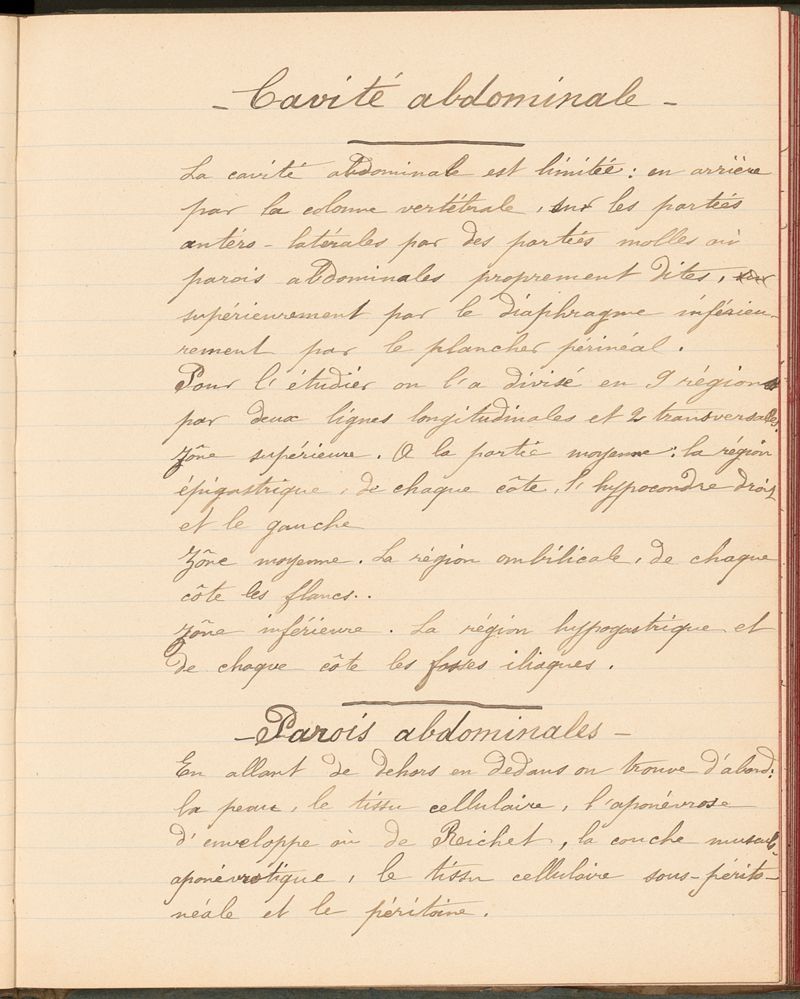 - Cavité abdominale -
La cavité abdominale est limitée : en arrière
par la colonne vertébrale, sur les parties
antéro-latérales par des parties molles où
parois abdominales proprement dites,
supérieurement par le diaphragme inférieu-
rement par le plancher périnéal.
Pour l'étudier on l'a divisé en 9 régions
par deux lignes longitudinales et 2 transversales.
Zône supérieure. A la partie moyenne : la région
épigastrique, de chaque côte, l'hypocondre droit
et le gauche
Zône moyenne. La région ombilicale, de chaque
côte les flancs..
Zône inférieure. La région hypogastrique et
de chaque côte les fosses iliaques.
- Parois abdominales -
En allant de dehors en dedans on trouve d'abord :
la peau, le tissu cellulaire, l'aponévrose
d'enveloppe où de Reichet, la couche musculo-
aponévrotique, le tissu cellulaire sous-périto-
néale et le péritoine.